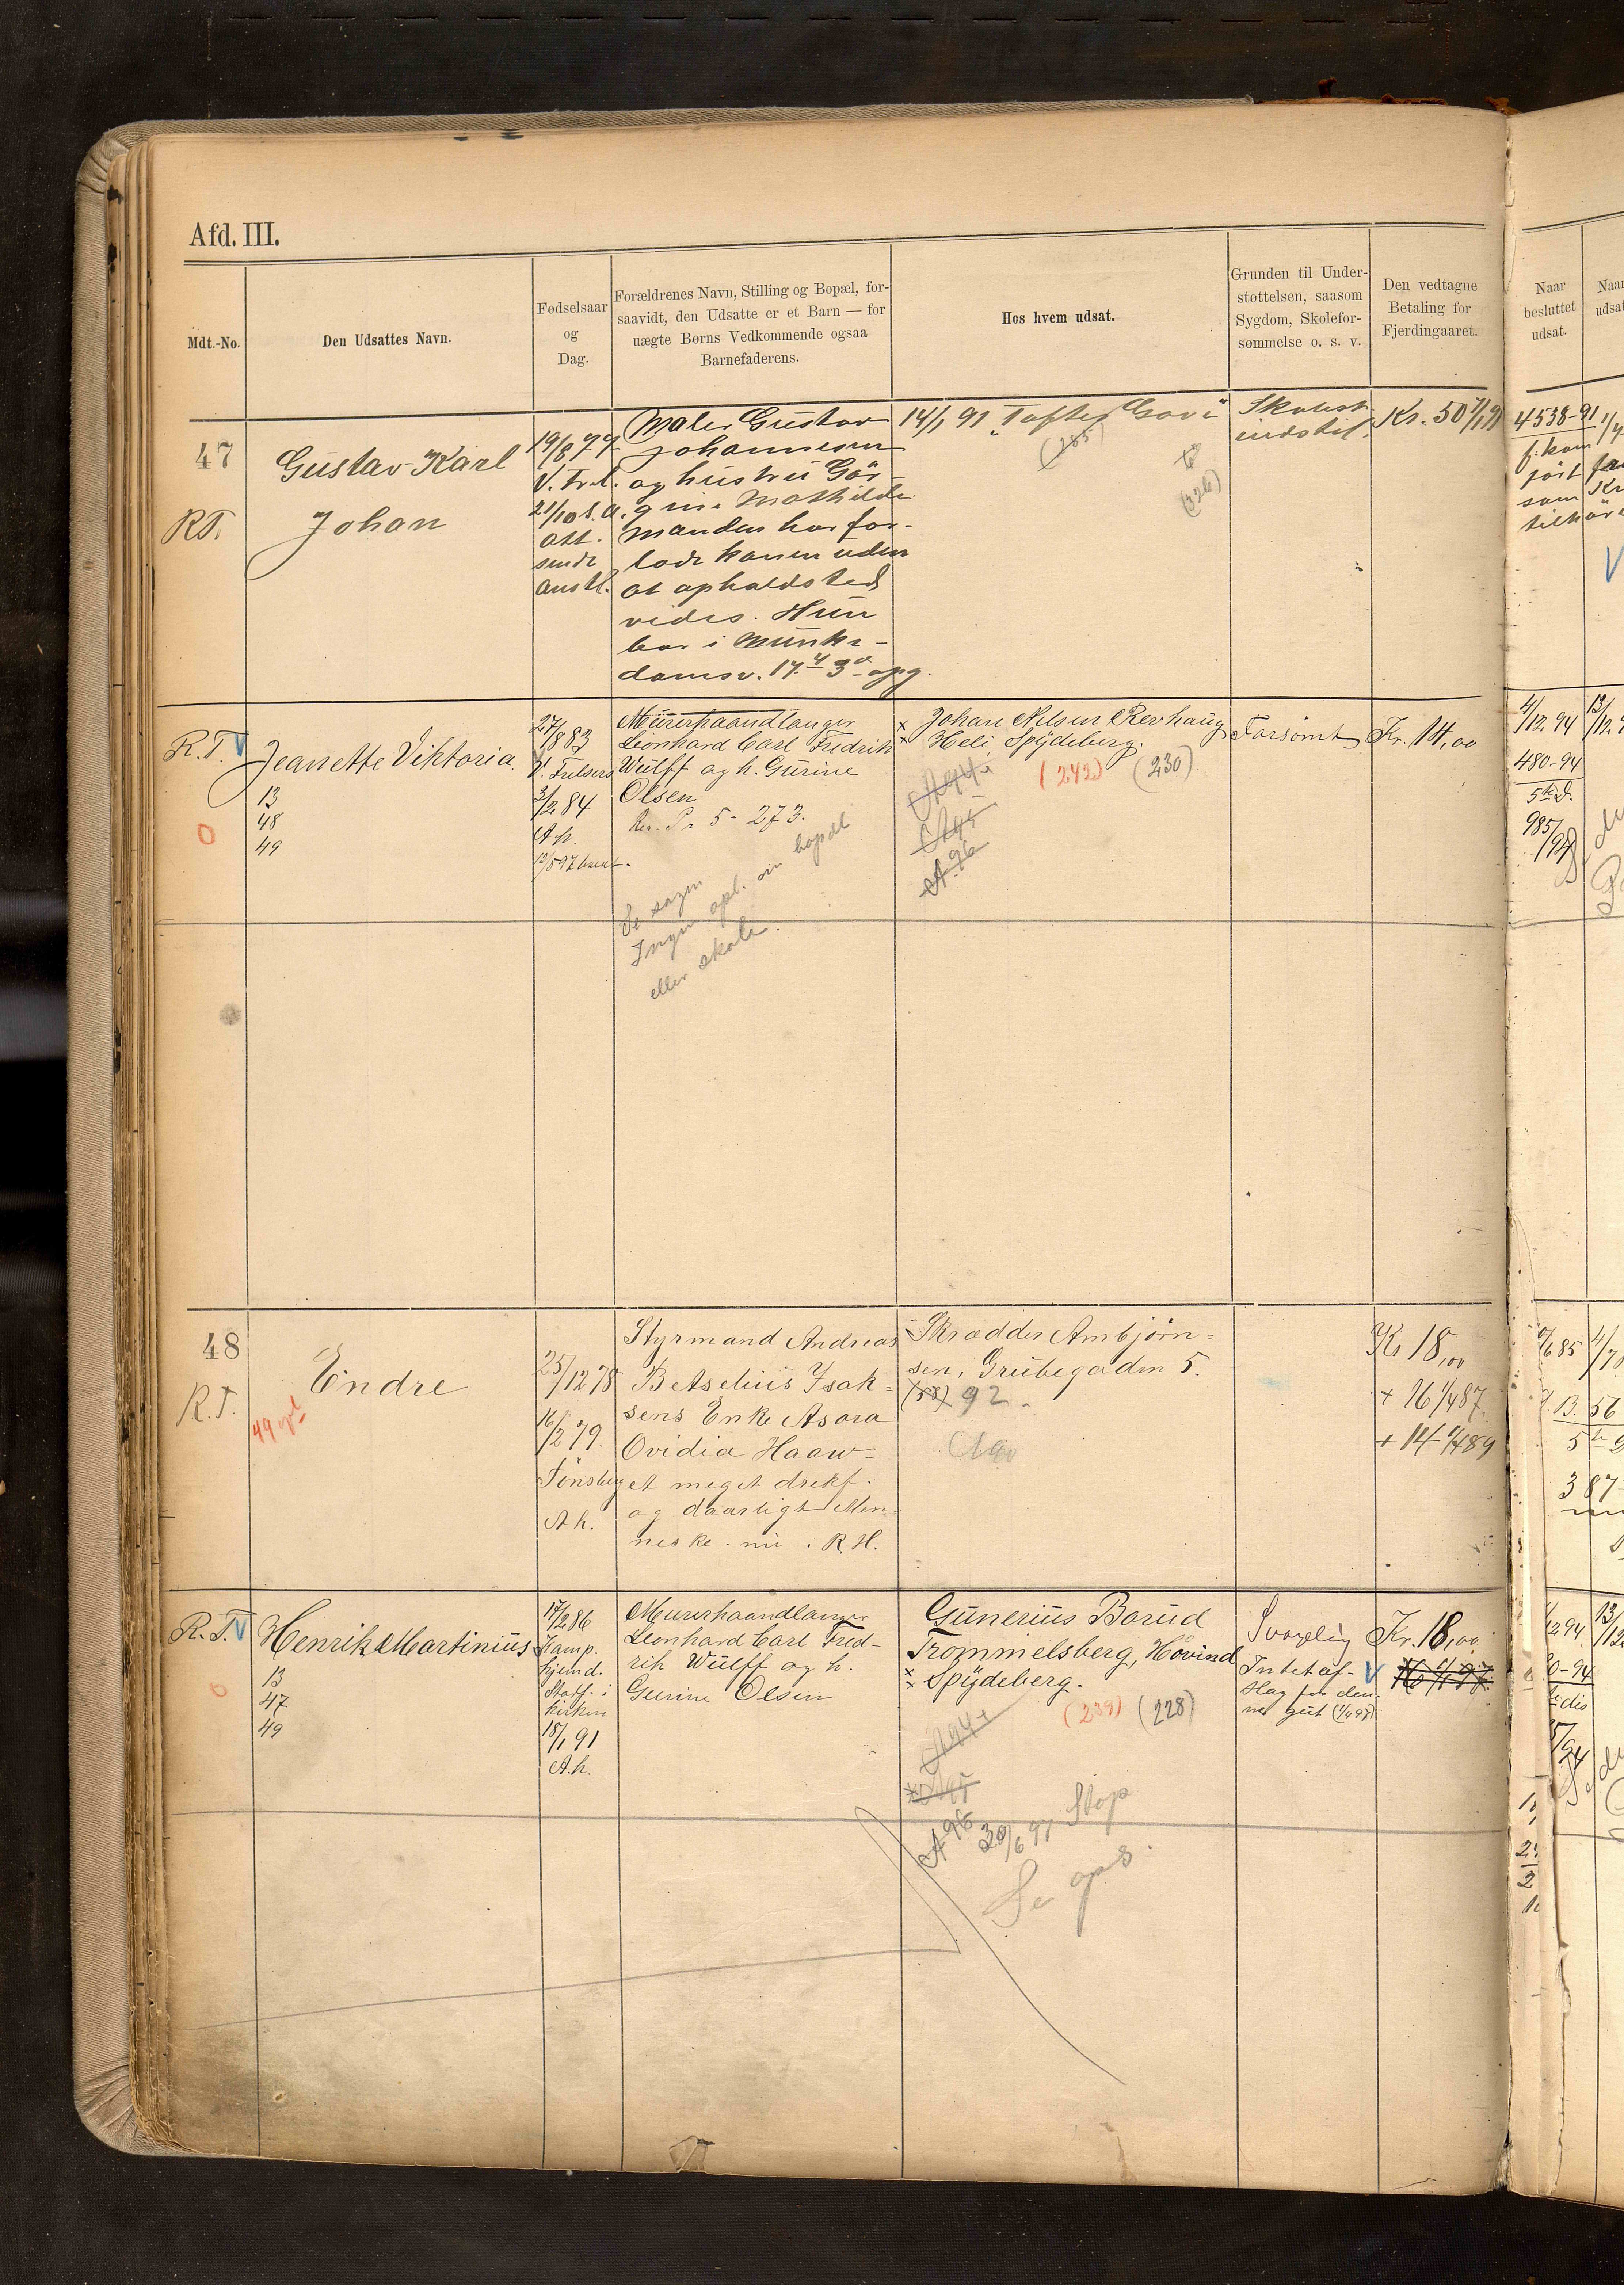 Afd. III.
Mdt.-No.
Den Udsattes Navn.
Fødselsaar
og
Dag.
Forældrenes Navn, Stilling og Bopæl, for-
saavidt, den Udsatte er et Barn — for
uægte Børns Vedkommende ogsaa
Barnefaderens.
Hos hvem udsat.
Grunden til Under-
støttelsen, saasom
Sygdom, Skolefor-
sømmelse o. s. v.
Den vedtagne
Betaling for
Fjerdingaaret.
Naar
besluttet
udsat.
47
R.T.
Gustav Karl
Johan
19/8 79
V. Fr.l.
21/10 s.a.
att.
sendt
anst.
Maler Gustav
Johannesen
og hustru Gör-
gine Mathilde
manden har for-
ladt konen uden
at opholdsted
vides. Hun
bor i Munke-
damsv. 17 4 3 opg.
14/1 91 "Toftes Gave"
(285)
(326)
Skolest.
indstil.
Kr. 50 1/1 91
4538-91
R.T. V
Jeanette Viktoria.
13
48
49
0
27/8 83
V. Frelsers
3/2 84
A.h.
Murerhaandlanger
Leonhard Carl Fredrik
Wülff og h. Gurine
Olsen
5 - 273.
Se sagen
Ingen opl. om bopæl
eller skole.
Johan Nilsen Revhaug
Heli, Spydeberg.
(242) (230)
A 94
A 95
A 96
Forsömt
Kr. 14,00
4/12 94
480-94
985/97
48
R.T.
49 opl
Endre
25/12 78
16/2 79.
Tönsberg
A.h.
Styrmand Andreas
Betselius Isak-
sens Enke Asora
Ovidia Haaw-
et meget drikf.
og daarligt Men-
neske. nu. R.H.
Skrædder Ambjörn-
sen, Grubegaden 5.
(58) 92.
A 90
Kr 18,00
+ 16 1/4 87.
+ 14 1/4 89
R.T. V
Henrik Martinius
13
47
49
0
17/2 86
Kamp.
hjemd.
Stadf. i
kirken
18/1 91
A.h.
Murerhaandlanger
Leonhard Carl Fred-
rik Wülff og h.
Gurine Olsen
Gunerius Borud
Trommelsberg, Hövind
Spydeberg.
(239) (228)
A 94
A 95
A 96
30/6 97 Stop
Se ops.
Svagelig
Intet af-
slag for den-
ne gut (1/4 97)
Kr. 18,00
V 16 1/1 97.